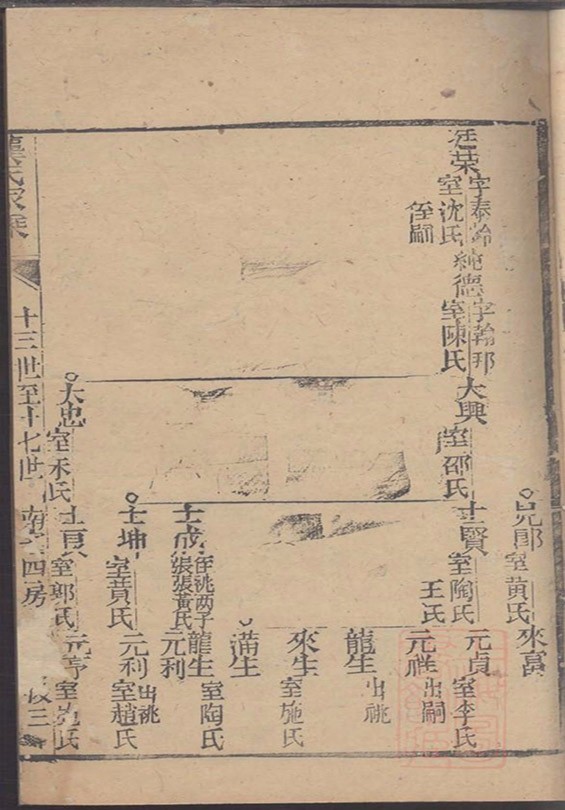 廷荣
字泰齡
室沈氏
侄嗣
純德
字翰邦
室陳氏
大興
室邵氏
士賢
室陶氏
王氏
兄郎
室黄氏
來富
元貞
室李氏
元祥
出嗣
龍生
出祧
來生
室施氏
滿生
士成
侄祧两子
張張黃氏
龍生
室陶氏
元利
士坤
室黄氏
元利
出祧
室趙氏
大忠
室禾氏
室郭氏
室范氏
氏家乘
十三世至十七世
四房
三